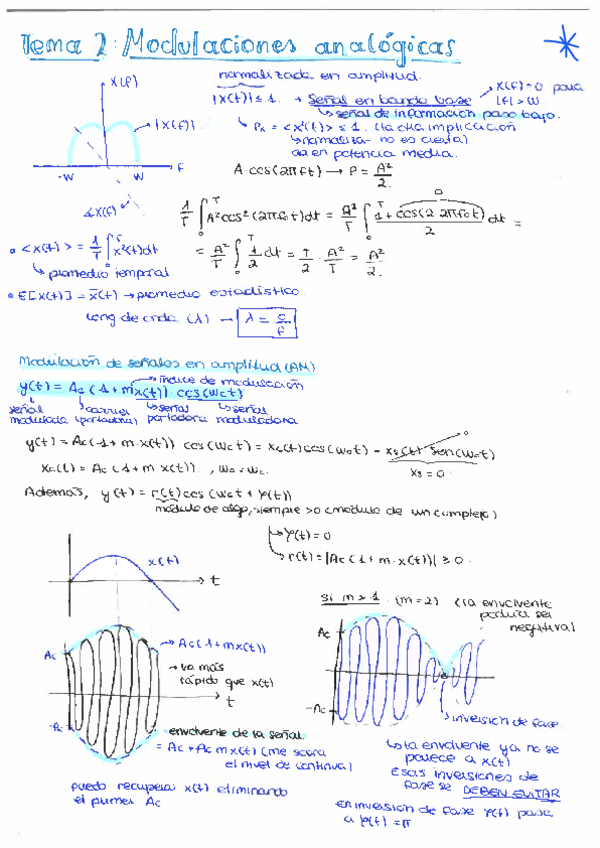 Tema 2: Modulaciones analógicas
X(f)
normalizada en amplitud.
|X(t)| ≤ 1. → Señal en banda base → X(f)=0 para |f| > W
↳ señal de información paso bajo.
|X(f)|
↳ Px = <x²(t)> ≤ 1. (la otra implicación
↳ normaliza- no es cierta)
da en potencia media.
-W W f
∡X(f)
A cos(2πft) → P = A²/2.
1/T ∫₀ᵀ A² cos²(2πf₀t)dt = A²/T ∫₀ᵀ (1 + cos(2·2πf₀t))/2 dt =
0
= A²/T ∫₀ᵀ 1/2 dt = T/2 · A²/T = A²/2.
<x(t)> = 1/T ∫₀ᵀ x²(t)dt
↳ promedio temporal
E[x(t)] = x̄(t) → promedio estadístico.
long de onda (λ) → λ = c/f
Modulación de señales en amplitud (AM)
→ índice de modulación
y(t) = Ac (1 + m x(t)) cos(Wct)
señal modulada
carrier (portadora)
↳ señal portadora
↳ señal moduladora
y(t) = Ac(1 + m·x(t)) cos(Wct) = xc(t)cos(W0t) - xs(t) sen(W0t)
0
xc(t) = Ac (1 + m x(t)) , W0 = Wc.
xs = 0
Además, y(t) = r(t) cos(Wct + φ(t))
módulo de algo, siempre >0 (módulo de un complejo)
↳ φ(t) = 0
↳ r(t) = |Ac(1 + m·x(t))| ≥ 0.
x(t)
t
Si m > 1 (m=2) (la envolvente podría ser negativa)
Ac
-Ac
→ Ac(1+mx(t))
→ va más rápido que x(t)
t
envolvente de la señal.
= Ac + Ac m x(t) (me sobra el nivel de continua)
puedo recuperar x(t) eliminando
el primer Ac
Ac
-Ac
inversión de fase
↳ la envolvente ya no se
parece a x(t)
Esas inversiones de
fase se DEBEN EVITAR
en inversión de fase φ(t) pasa
a φ(t) = π